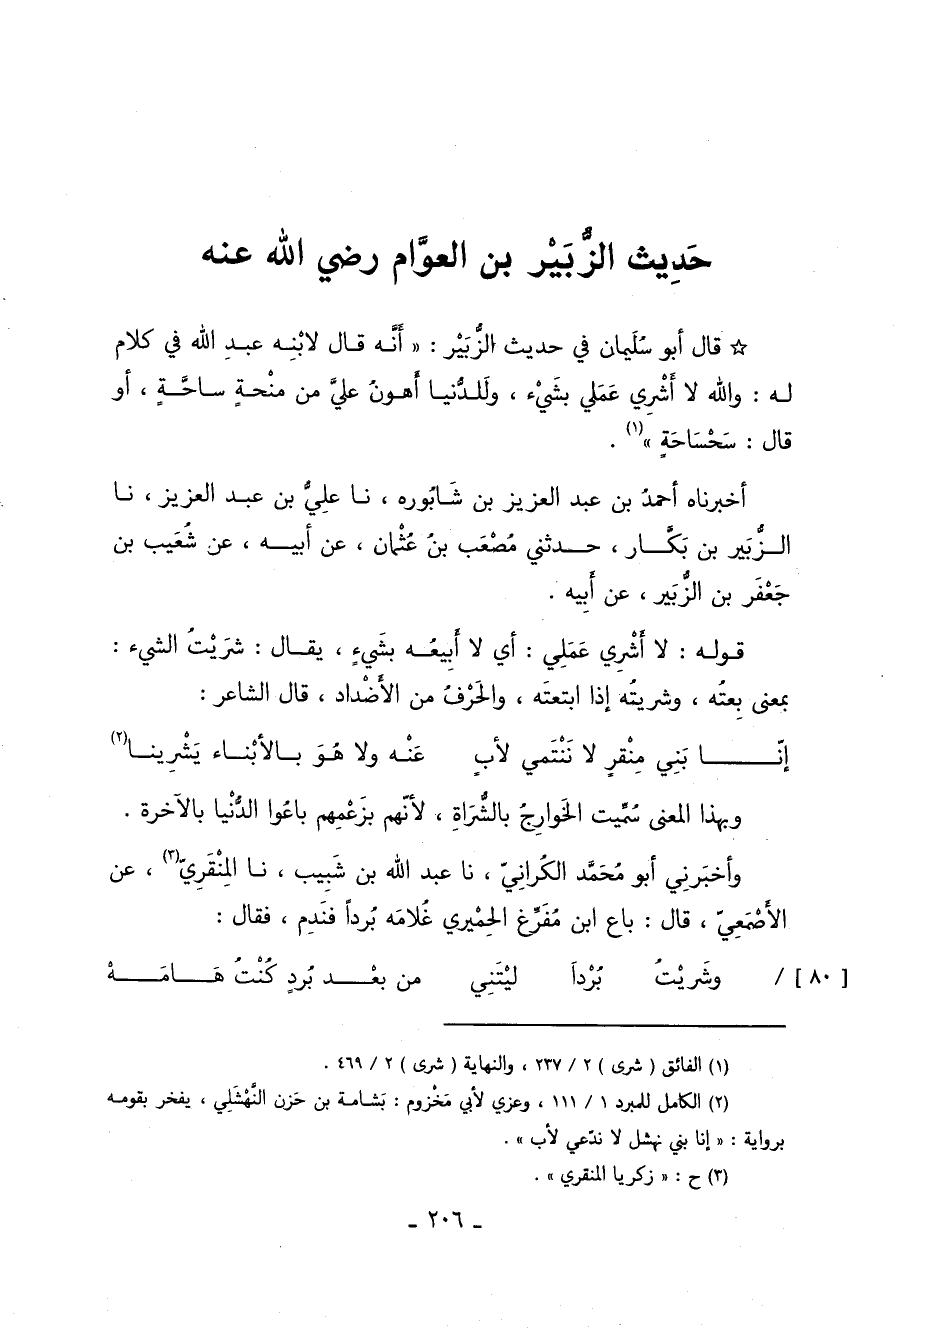 حَدِيث الزُّبَيْر بن العوَّام رضي الله عنه
☆ قال أبو سُلَيمان في حديث الزُّبَيْر : « أَنَّه قال لابْنِه عبدِ الله في كلام
له : والله لا أَشْرِي عَمَلي بشَيْء ، ولَلدُّنيا أَهونُ عليَّ من مِنْحةٍ ساحَّةٍ ، أو
قال : سَحْسَاحَةٍ »(١) .
أخبرناه أحمدُ بن عبد العزيز بن شَابُوره ، نا عليُّ بن عبد العزيز ، نا
الزُّبَير بن بَكَّار ، حدثني مُصْعَب بنُ عُثْمان ، عن أبيه ، عن شُعَيب بن
جَعْفَر بن الزُّبَير ، عن أَبِيه .
قوله : لا أَشْرِي عَمَلِي : أي لا أَبِيعُه بشَيءٍ ، يقال : شرَيْتُ الشيء :
بمعنى بِعتُه ، وشريتُه إذا ابتعتَه ، والحَرْفُ من الأضْداد ، قال الشاعر :
إنّا بَنِي مِنْقرٍ لا نَنْتَمي لأبٍ عَنْه ولا هُوَ بالأبْناء يَشْرِينا(٢)
وبهذا المعنى سُمِّيت الخوارجُ بالشُّرَاةِ ، لأنّهم بزَعْمِهم باعُوا الدُّنْيا بالآخرة .
وأخبَرني أبو مُحَمَّد الكُرانِيّ ، نا عبد الله بن شَبِيب ، نا المِنْقَرِيّ(٣) ، عن
الأَصْمَعِيّ ، قال : باع ابن مُفَرِّغ الحِمْيري غُلامَه بُرداً فنَدِم ، فقال :
[ ٨٠ ] / وشَريْتُ بُرْداً لَيْتَنِي من بعْد بُردٍ كُنْتُ هَامَهْ
(١) الفائق ( شرى ) ٢ / ٢٣٧ ، والنهاية ( شرى ) ٢ / ٤٦٩ .
(٢) الكامل للمبرد ١ / ١١١ ، وعزي لأبي مَخْزوم : بَشامة بن حَزن النَّهْشَلي ، يفخر بقومه
برواية : « إنا بني نهشل لا ندّعي لأب » .
(٣) ح : « زكريا المنقري » .
ـ ٢٠٦ ـ